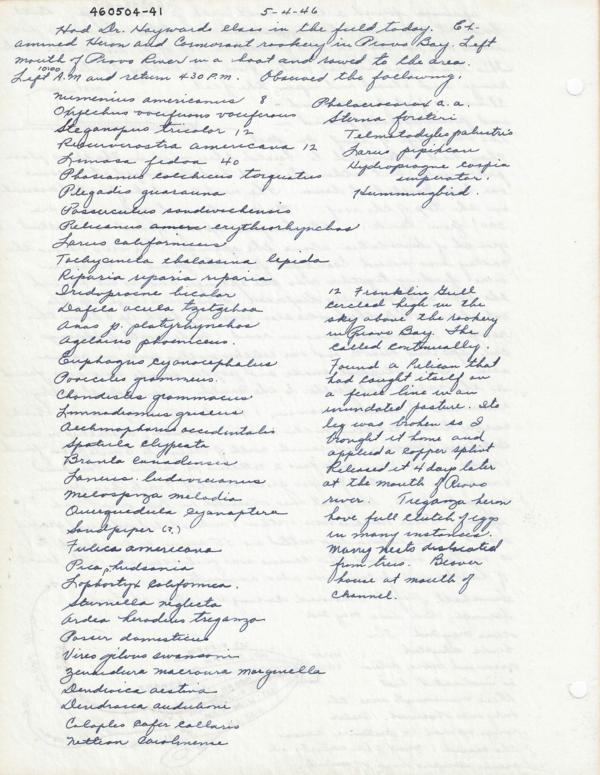 460504-41
5-4-46
Had Dr. Haywards class in the field today. Ex-
amined Heron and Cormorant rookery in Provo Bay. Left
mouth of Provo River in a boat and rowed to the area.
Left 10:00 A.M and return 4:30 P.M. Observed the following.
Numenius americanus 8
Oxyechus vociferous vociferous
Steganopus tricolor 12
Recurvirostra americana 12
Limosa fedoa 40
Phasianus colchicus torquatus
Plegadis guarauna
Passerculus sandwichensis
Pelicanus erythrorhynchos
Larus californicus
Tachycineta thalassina lepida
Riparia riparia riparia
Iridoprocne bicolor
Dafila acuta tzitzihoa
Anas p. platyrhynchos
Agelaius phoeniceus.
Euphagus cyanocephalus
Pooecetes gramineus.
Chondestes grammacus
Limnodromus griseus
Aechmophorus occidentalis
Spatula clypeata
Branta canadensis
Lanius ludovicianus
Melospiza melodia
Querquedula cyanoptera
Sandpiper (?)
Fulica americana
Pica p. hudsonia
Lophortyx californica.
Sturnella neglecta
Ardea herodius treganzai
Passer domesticus
Vireo gilvus swansoni
Zenaidura macroura marginella
Dendroica aestiva
Dendroica auduboni
Colaptes cafer collaris
Nettion carolinense
Phalacrocorax a. a.
Sterna forsteri
Telmatodytes palustris
Larus pipixcan
Hydroprogne caspia
imperator.
Hummingbird.
12 Franklin Gull
circled high in the
sky above the rookery
in Provo Bay. The
called continually.
Found a Pelican that
had caught itself on
a fence line in an
inundated pasture. Its
leg was broken so I
brought it home and
applied a copper splint
Released it 4 days later
at the mouth of Provo
river. Treganza heron
have full clutch of eggs
in many instances.
Many nests dislocated
from trees. Beaver
house at mouth of
channel.